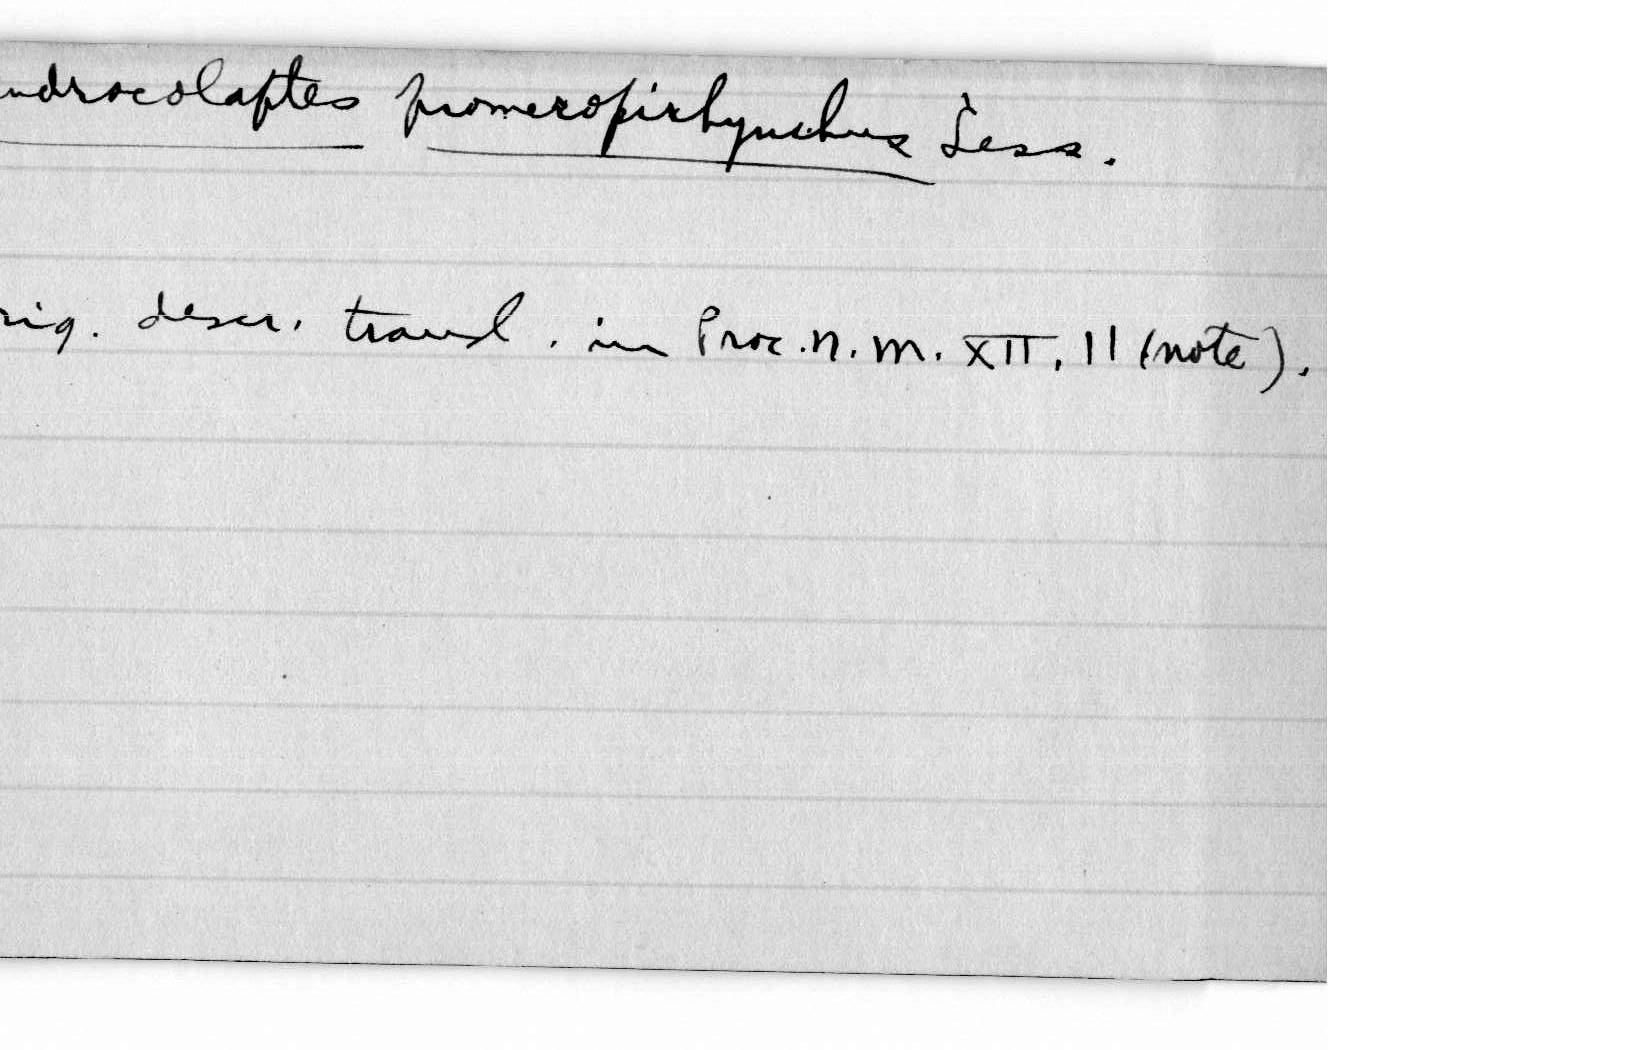 ndrocolaptes promeropirhynchus Less.
rig. descr. transl. in Proc. N. M. XII, 11 (note).